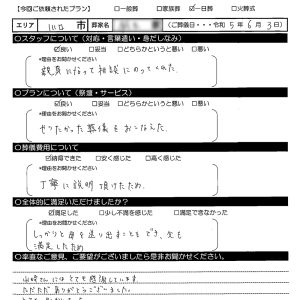 【今回ご依頼されたプラン】 □一般葬 □家族葬 ☑一日葬 □火葬式
エリア 川口 市 葬家名 家 (ご葬儀日・・・令和 5 年 6 月 3 日)
○スタッフについて(対応・言葉遣い・身だしなみ)
☑良い □妥当 □どちらかというと悪い □悪い
*理由をお聞かせください
親身になって相談にのってくれた
○プランについて(祭壇・サービス)
☑良い □妥当 □どちらかというと悪い □悪い
*理由をお聞かせください
やりたかった葬儀をおこなえた
○葬儀費用について
☑納得できた □安く感じた □高く感じた
*理由をお聞かせください
丁寧に説明頂けたため
○全体的に満足いただけましたか?
☑満足した □少し不満を感じた □満足できなかった
*理由をお聞かせください
しっかりと母を送り出すこともでき、父も
満足したため
○率直なご意見、ご要望がございましたら是非お聞かせください。
山崎さんにはとても感謝しています。
ただただありがとうございました。